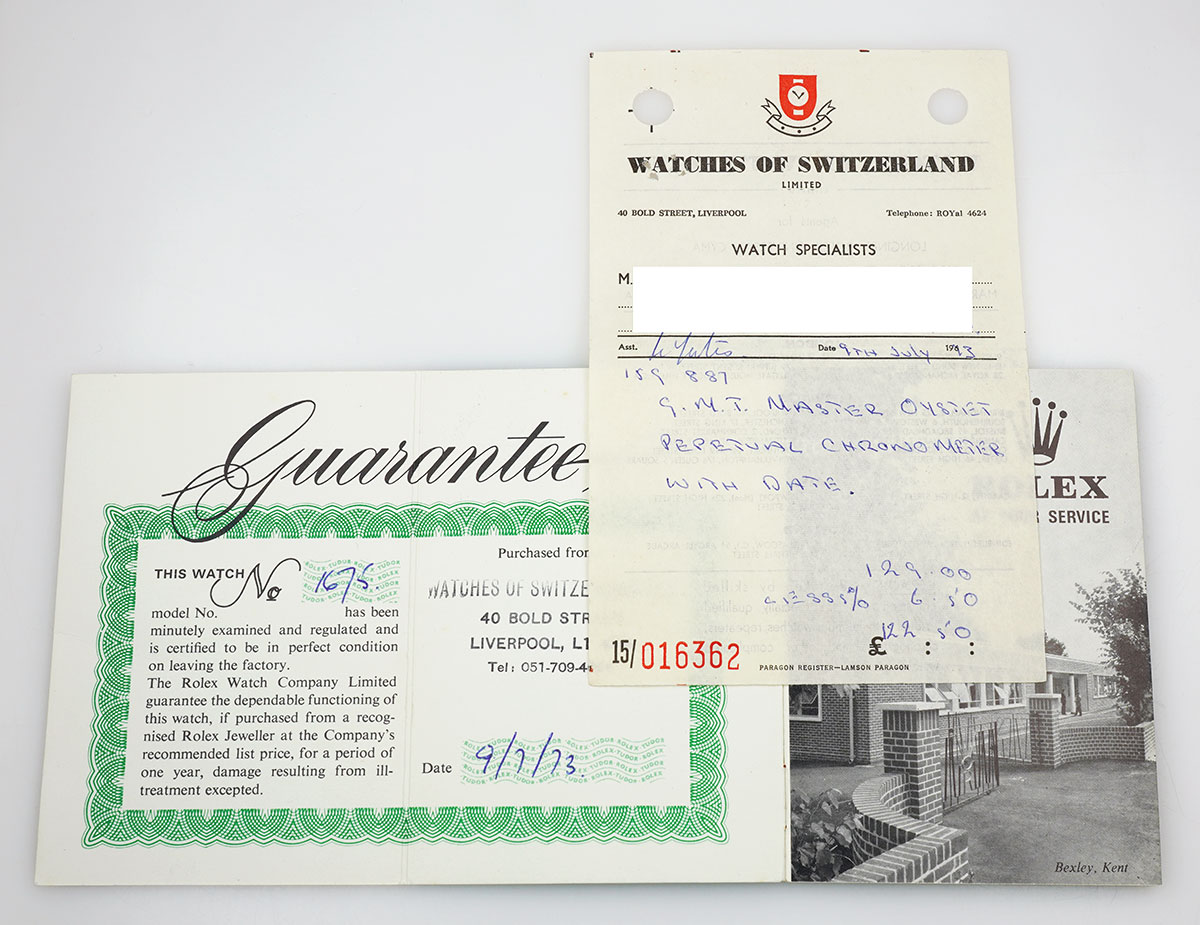 WATCHES OF SWITZERLAND
LIMITED
40 BOLD STREET, LIVERPOOL
Telephone: ROYal 4624
WATCH SPECIALISTS
M.
Asst.
Date 9TH July 1973
159 887
G.M.T. MASTER OYSTET
PEPETUAL CHRONOMETER
WITH DATE.
129.00
LESS 5% 6.50
£ 122.50
15/016362
PARAGON REGISTER—LAMSON PARAGON
Guarantee
THIS WATCH No 1675
model No. has been
minutely examined and regulated and
is certified to be in perfect condition
on leaving the factory.
The Rolex Watch Company Limited
guarantee the dependable functioning of
this watch, if purchased from a recog-
nised Rolex Jeweller at the Company's
recommended list price, for a period of
one year, damage resulting from ill-
treatment excepted.
Purchased from
WATCHES OF SWITZE
40 BOLD STR
LIVERPOOL, L1
Tel: 051-709-4
Date 9/7/73.
LEX
R SERVICE
Bexley, Kent